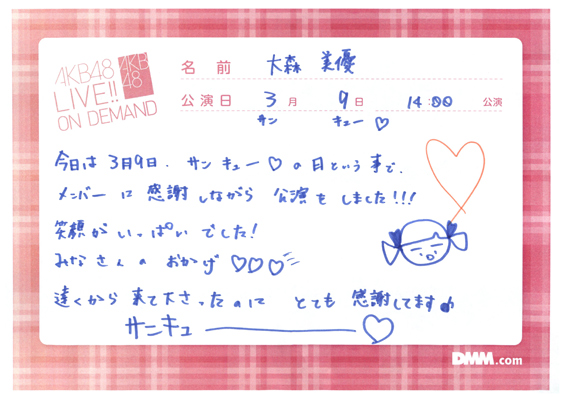 AKB48
LIVE!!
ON DEMAND
AKB
48
名前 大森 美優
公演日 3月 9日 14:00 公演
サン キュー♡
今日は 3月9日. サンキュー♡の日という事で.
メンバーに 感謝しながら 公演もしました!!!
笑顔がいっぱいでした!
みなさんの おかげ♡♡♡
遠くから 来て下さったのに とても 感謝してます♪
サンキュー♡
DMM.com